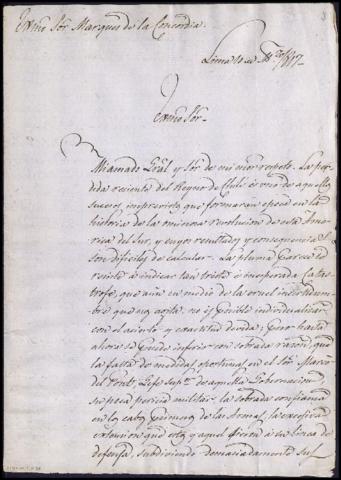 Exmo Sor. Marques de la Concordia.
Lima 10 de Mzo. de 1817
Exmo Sor.
Mi amado Gral. y Sor. de mi mior respeto. La per-
dida reciente del Reyno de Chile es uno de aquellos
sucesos imprevistos, que formaran epoca en la
historia de la ominosa revolucion de esta Ame-
rica del Sur, y cuyos resultados y consequencias
son dificiles de calcular. La pluma parece se
resiste á indicar tan triste é inesperada Catas-
trofe, que aun en medio de la cruel incertidum-
bre que nos agita, no es posible individualizar
con el acierto y exactitud devida; pero hasta
ahora se puede inferir con sobrada razon, que
la falta de medidas oportunas en el Sor. Marco
del Pont, Gefe Supor. de aquella Governacion,
su poca pericia militar, la sobrada confianza
en los cabos primeros de las Armas, la excesiva
extension que este y aquel dieron á su linea de
defensa, subdividiendo demasiadamente sus